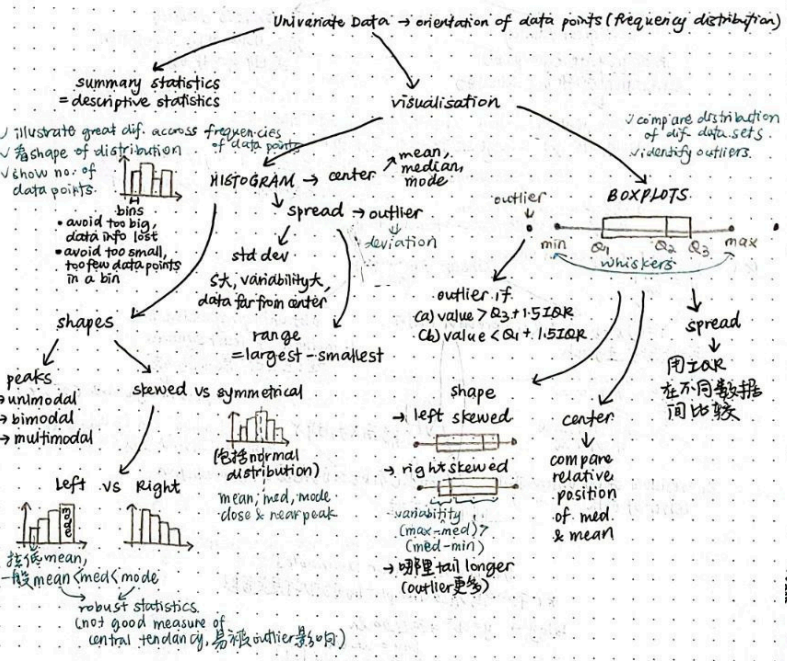 Univariate Data → orientation of data points (frequency distribution)
summary statistics
= descriptive statistics
visualisation
✓ illustrate great dif. across frequencies
of data points
✓ 看shape of distribution
✓ show no. of
data points.
bins
• avoid too big,
data info lost
• avoid too small,
too few data points
in a bin
HISTOGRAM → center
mean,
median,
mode
spread → outlier
deviation
std dev
S大, variability大,
data far from center
range
= largest - smallest
shapes
peaks
→ unimodal
→ bimodal
→ multimodal
skewed vs symmetrical
(包括normal
distribution)
mean, med, mode
close & near peak
Left vs Right
mean,
一般mean<med<mode
robust statistics.
(not good measure of
central tendancy, 易被outlier影响)
✓ compare distribution
of dif. data sets.
✓ identify outliers.
BOXPLOTS
outlier
min Q1 Q2 Q3 max
whiskers
outlier if
(a) value > Q3 + 1.5IQR
(b) value < Q1 + 1.5IQR
shape
→ left skewed
→ right skewed
variability
(max-med)>
(med-min)
→ 哪里tail longer
(outlier更多)
center
compare
relative
position
of med.
& mean
spread
用IQR
在不同数据
间比较